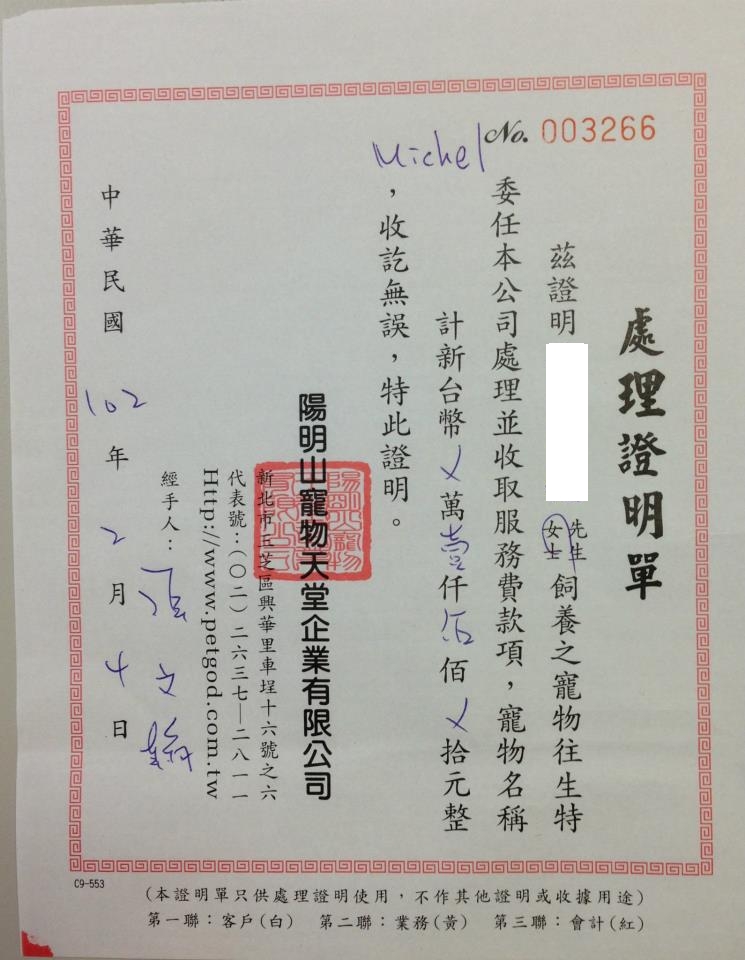 No. 003266
處理證明單
茲證明 先生 女士 飼養之寵物往生特
委任本公司處理並收取服務費款項，寵物名稱
Michel
計新台幣 X 萬 壹 仟 伍 佰 X 拾元整
，收訖無誤，特此證明。
陽明山寵物天堂企業有限公司
新北市三芝區興華里車埕十六號之六
代表號：(〇二)二六三七—二八一一
Http://www.petgod.com.tw
經手人：張文
中華民國 102 年 2 月 4 日
C9-553
(本證明單只供處理證明使用，不作其他證明或收據用途)
第一聯：客戶(白) 第二聯：業務(黃) 第三聯：會計(紅)